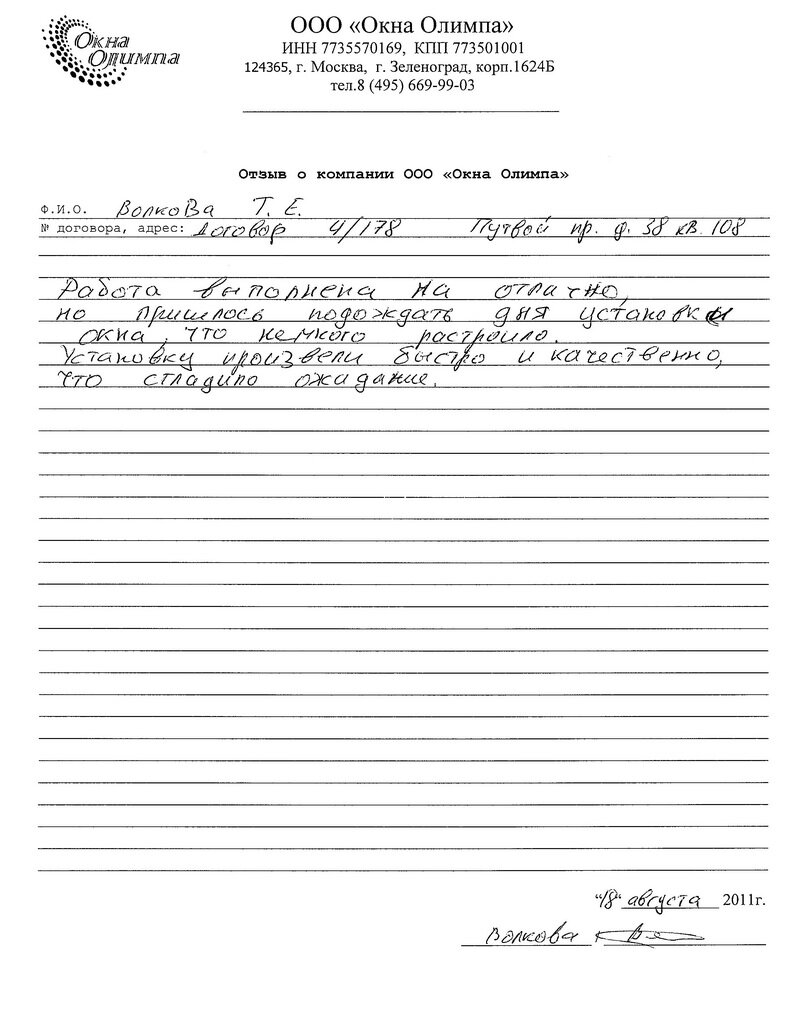 Окна
Олимпа
ООО «Окна Олимпа»
ИНН 7735570169, КПП 773501001
124365, г. Москва, г. Зеленоград, корп.1624Б
тел.8 (495) 669-99-03
Отзыв о компании ООО «Окна Олимпа»
Ф.И.О. Волкова Т. Е.
№ договора, адрес: Договор 4/178 Путвой пр. д. 38 кв. 108
Работа выполнена на отлично,
но пришлось подождать дня установки
окна, что немкого растроило.
Установку произвели быстро и качественно,
что сгладило ожидание.
"18" августа 2011г.
Волкова